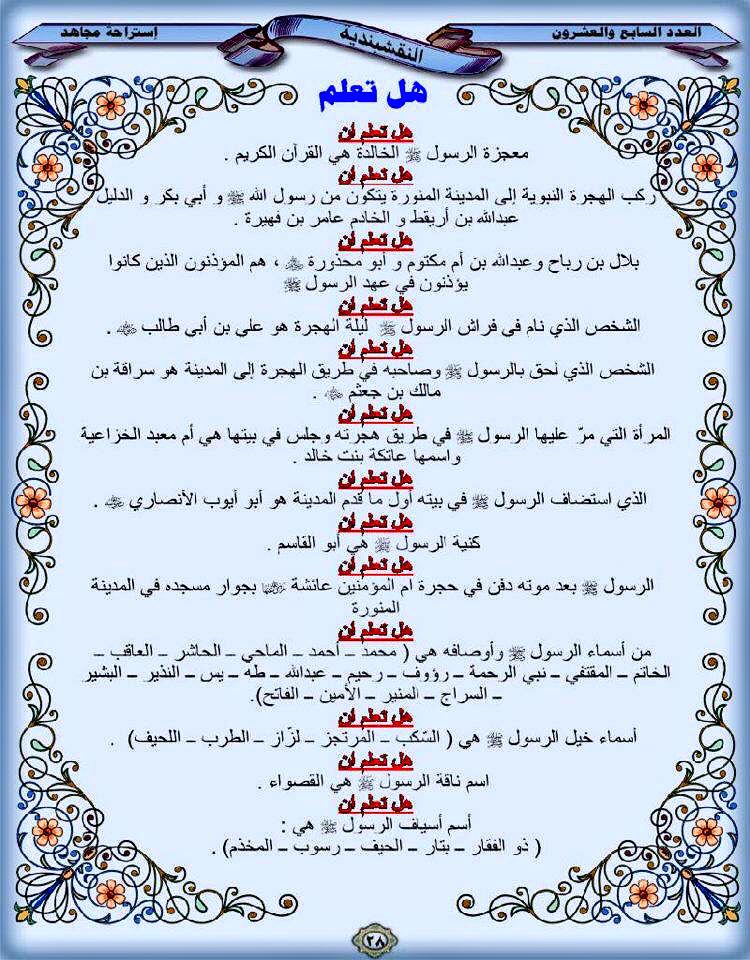 العدد السابع والعشرون
النقشبندية
إستراحة مجاهد
هل تعلم
هل تعلم أن
معجزة الرسول ﷺ الخالدة هي القرآن الكريم .
هل تعلم أن
ركب الهجرة النبوية إلى المدينة المنورة يتكون من رسول الله ﷺ و أبي بكر و الدليل
عبدالله بن أريقط و الخادم عامر بن فهيرة .
هل تعلم أن
بلال بن رباح وعبدالله بن أم مكتوم و أبو محذورة ، هم المؤذنون الذين كانوا
يؤذنون في عهد الرسول ﷺ
هل تعلم أن
الشخص الذي نام في فراش الرسول ﷺ ليلة الهجرة هو علي بن أبي طالب .
هل تعلم أن
الشخص الذي لحق بالرسول ﷺ وصاحبه في طريق الهجرة إلى المدينة هو سراقة بن
مالك بن جعثم .
هل تعلم أن
المرأة التي مرّ عليها الرسول ﷺ في طريق هجرته وجلس في بيتها هي أم معبد الخزاعية
واسمها عاتكة بنت خالد .
هل تعلم أن
الذي استضاف الرسول ﷺ في بيته أول ما قدم المدينة هو أبو أيوب الأنصاري .
هل تعلم أن
كنية الرسول ﷺ هي أبو القاسم .
هل تعلم أن
الرسول ﷺ بعد موته دفن في حجرة ام المؤمنين عائشة بجوار مسجده في المدينة
المنورة
هل تعلم أن
من أسماء الرسول ﷺ وأوصافه هي ( محمد – احمد – الماحي – الحاشر – العاقب –
الخاتم – المقتفي – نبي الرحمة – رؤوف – رحيم – عبدالله – طه – يس – النذير – البشير
– السراج – المنير – الأمين – الفاتح).
هل تعلم أن
أسماء خيل الرسول ﷺ هي ( السّكب – المرتجز – لزّاز – الطرب – اللحيف) .
هل تعلم أن
اسم ناقة الرسول ﷺ هي القصواء .
هل تعلم أن
أسم أسياف الرسول ﷺ هي :
( ذو الفقار – بتار – الحيف – رسوب – المخذم) .
٢٨